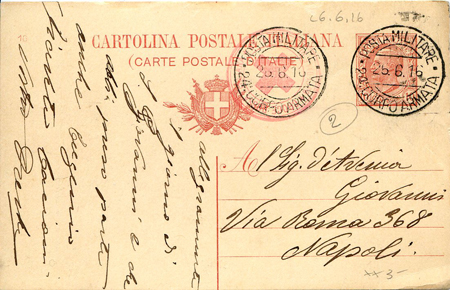 26.6.16
CARTOLINA POSTALE ITALIANA
(CARTE POSTALE D'ITALIE)
POSTA MILITARE
26.6.16
24° CORPO D'ARMATA
POSTA MILITARE
26.6.16
24° CORPO D'ARMATA
2
A
Al Sig. d'Avenia
Giovanni
Via Roma 368
Napoli.
allegramente
il giorno di
S. Giovanni e che
parte
anche Eugenio
Vostro